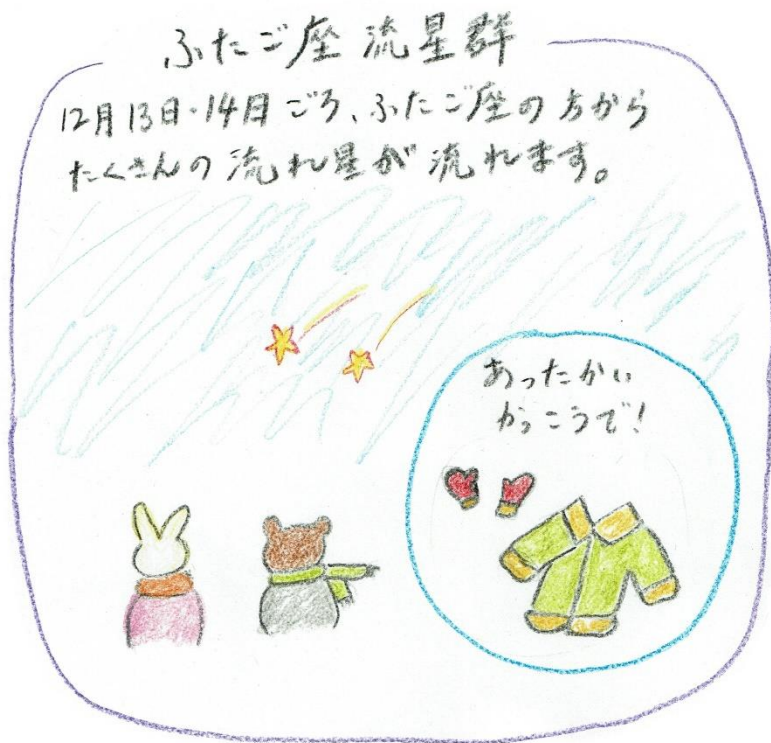 ふたご座流星群
12月13日・14日ごろ、ふたご座の方から
たくさんの流れ星が流れます。
あったかい
かっこうで!